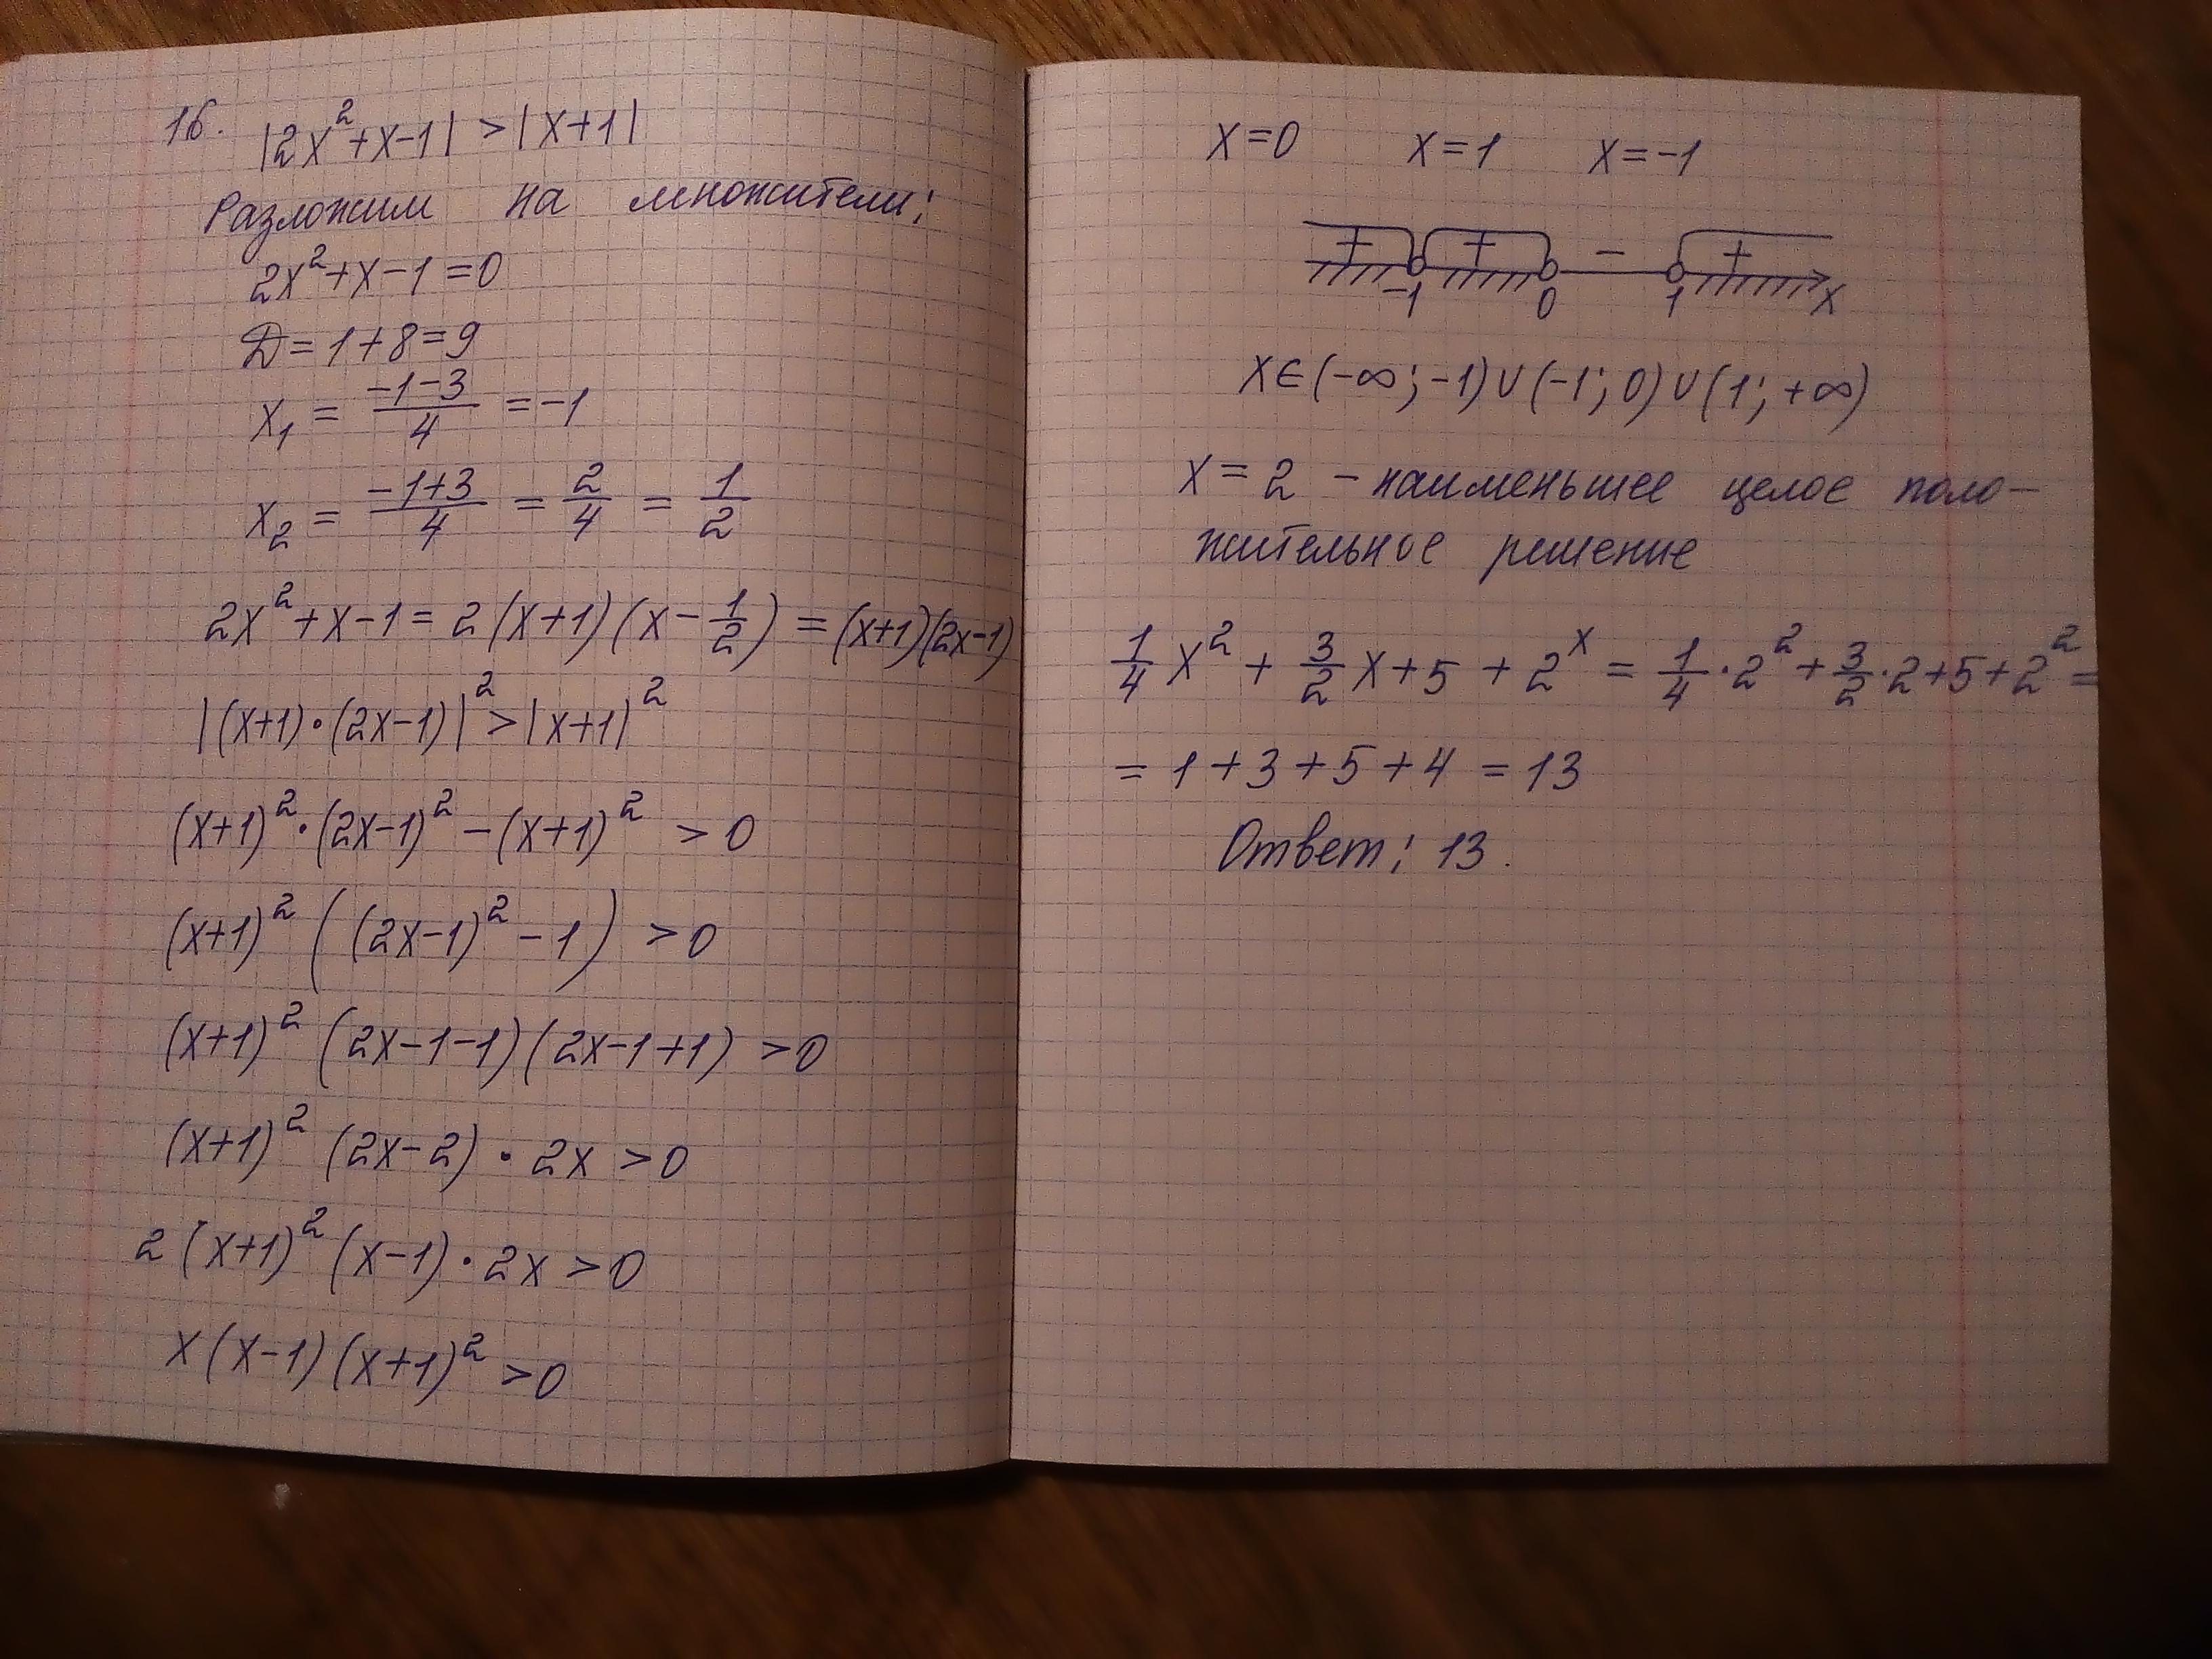 16. |2x²+x-1| > |x+1|
Разложим на множители:
2x²+x-1=0
D=1+8=9
x₁ = (-1-3)/4 = -1
x₂ = (-1+3)/4 = 2/4 = 1/2
2x²+x-1 = 2(x+1)(x-1/2) = (x+1)(2x-1)
|(x+1)·(2x-1)|² > |x+1|²
(x+1)²·(2x-1)² - (x+1)² > 0
(x+1)² ((2x-1)² - 1) > 0
(x+1)² (2x-1-1)(2x-1+1) > 0
(x+1)² (2x-2)·2x > 0
2(x+1)² (x-1)·2x > 0
x(x-1)(x+1)² > 0
x=0 x=1 x=-1
+ + - +
-1 0 1 x
x∈(-∞;-1)∪(-1;0)∪(1;+∞)
x=2 - наименьшее целое поло-
жительное решение
1/4 x² + 3/2 x + 5 + 2ˣ = 1/4·2² + 3/2·2+5+2² =
= 1+3+5+4 = 13
Ответ: 13.